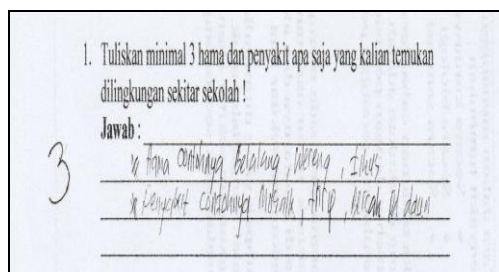 1. Tuliskan minimal 3 hama dan penyakit apa saja yang kalian temukan
dilingkungan sekitar sekolah !
Jawab :
3
* Hama contohnya Belalang, Wereng, Tikus
* Penyakit contohnya Mosaik, , Bercak